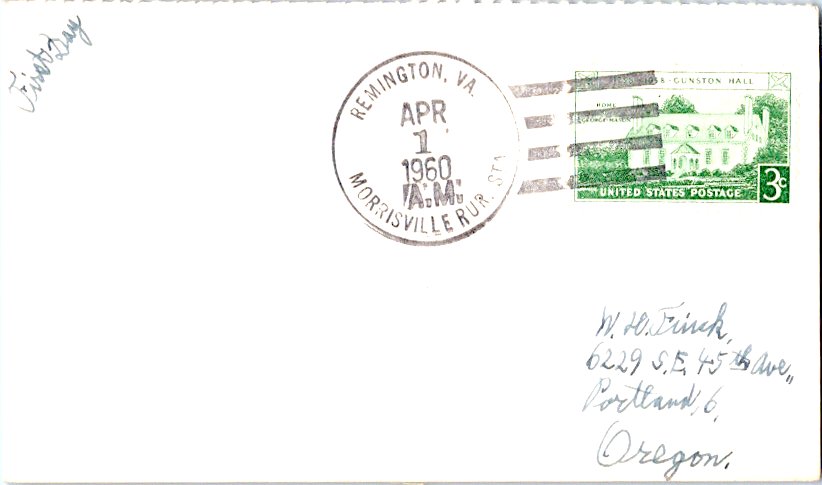 First Day
REMINGTON, VA.
APR
1
1960
A.M.
MORRISVILLE RUR. STA.
1958 - GUNSTON HALL
HOME
GEORGE MASON
UNITED STATES POSTAGE
3c
W. D. Finck,
6229 S.E. 45th Ave,,
Portland, 6,
Oregon.